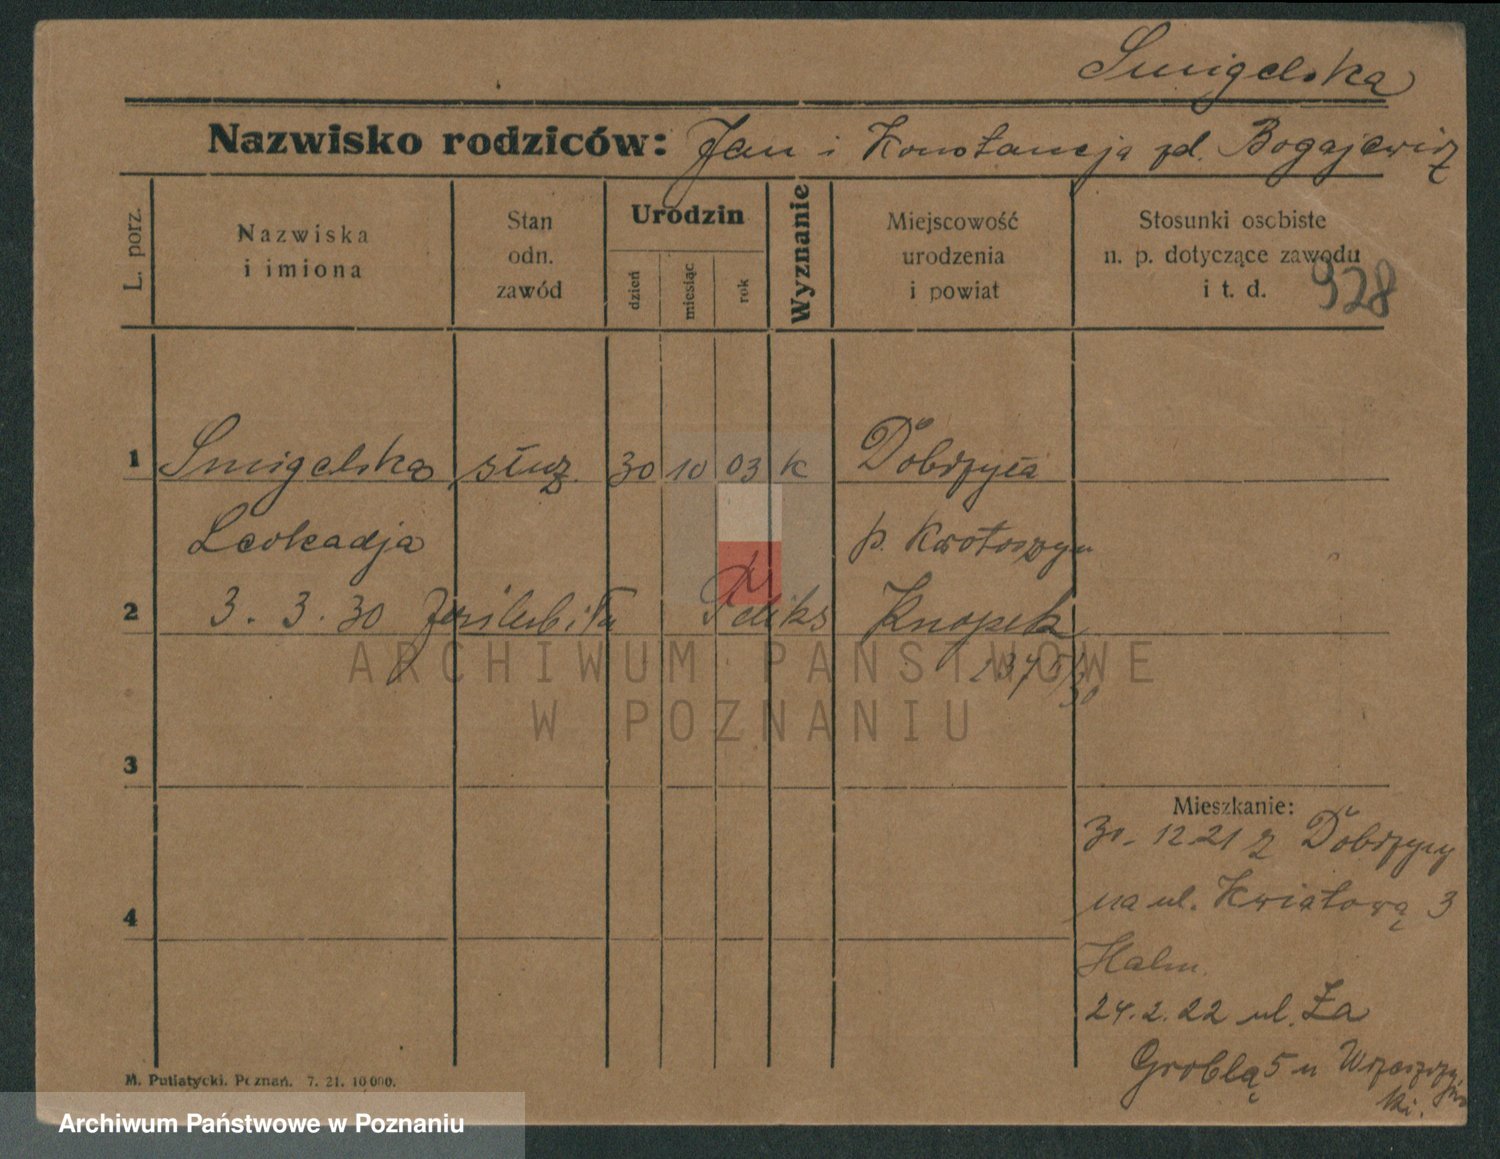 Smigelska
Nazwisko rodziców: Jan i Konstancja zd. Bogajewicz
L. porz.
Nazwiska
i imiona
Stan
odn.
zawód
Urodzin
dzień
miesiąc
rok
Wyznanie
Miejscowość
urodzenia
i powiat
Stosunki osobiste
n. p. dotyczące zawodu
i t. d.
928
1 Smigelska służ. 30 10 03 K Dobrzyca
Leokadja p. Krotoszyn
2 3. 3. 30 zaślubiła Feliks Knopek
3
Mieszkanie:
30. 12 21 z Dobrzycy
na ul. Kwiatową 3
4
Halm.
24. 2. 22 ul. Za
Groblą 5 u
ki.
M. Putiatycki. Poznań. 7. 21. 10 000.
ARCHIWUM PAŃSTWOWE
W POZNANIU
Archiwum Państwowe w Poznaniu